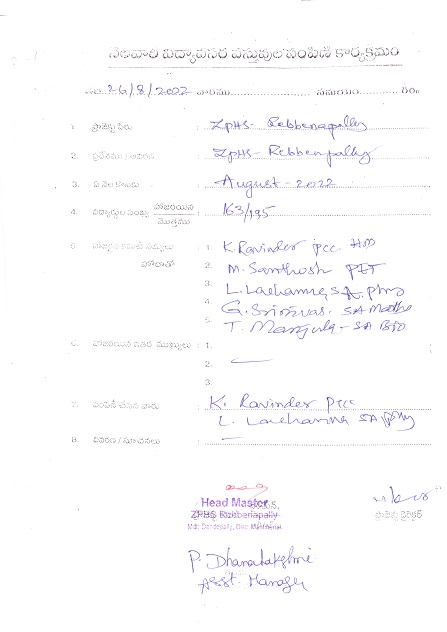 నెలవారి విద్యావసర వస్తువుల పంపిణి కార్యక్రమం
తేది 26/8/2022 వారము సమయం గం॥
1. ప్రాజెక్టు పేరు ZPHS- Rebbenapally
2. ప్రదేశము / ZPHS- Rebbenpally
3. ఏ నెల కొరకు August - 2022
4. విద్యార్థుల సంఖ్య హాజరయిన / మొత్తము 163/195
5. సభ్యులు 1. K. Ravinder PCC HM
2. M. Santhosh PET
3. L. Lachanna, S.A. Phy
4. G. Srinivas. SA Maths
5. T. Manjula - SA BIO
6. హాజరయిన ఇతర ముఖ్యులు 1.
2. —
3.
7. పంపిణి చేసిన వారు K. Ravinder PCC
L. Lachanna SA phy
8. వివరణ / సూచనలు —
Head Master
ZPHS Rebbenapally
Mdl: Dandepally, Dist: Mancherial
ప్రాజెక్టు డైరెక్టర్
P. Dhanalakshmi
Asst. Manager